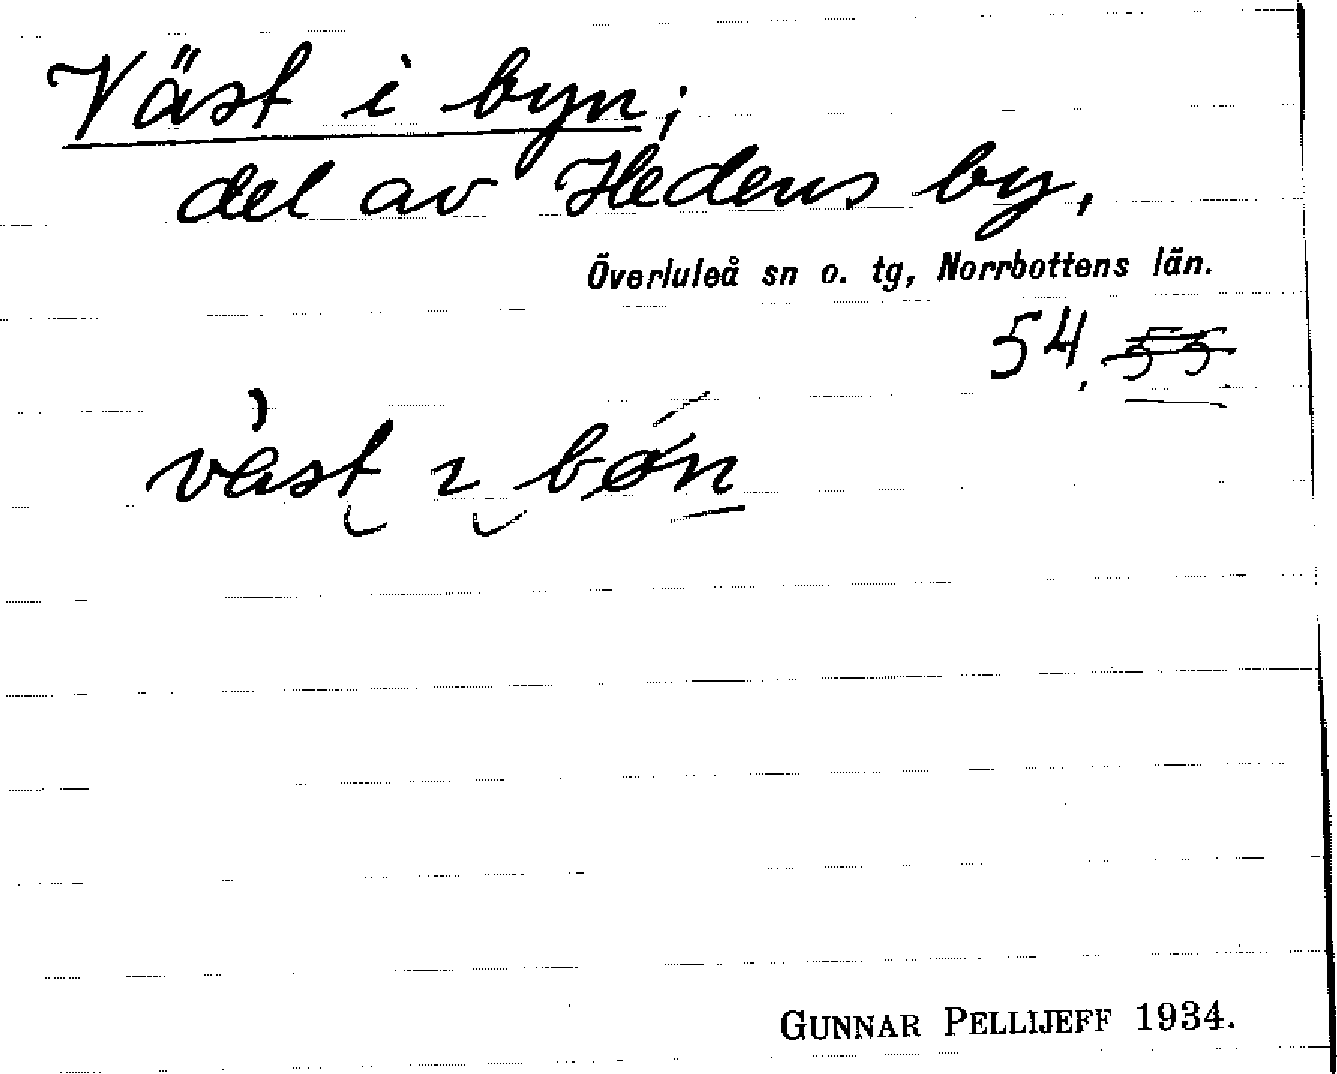 Väst i byn;
del av Hedens by,
Överluleå sn o. tg, Norrbottens län.
54. 55
väst ı bøn
GUNNAR PELLIJEFF 1934.